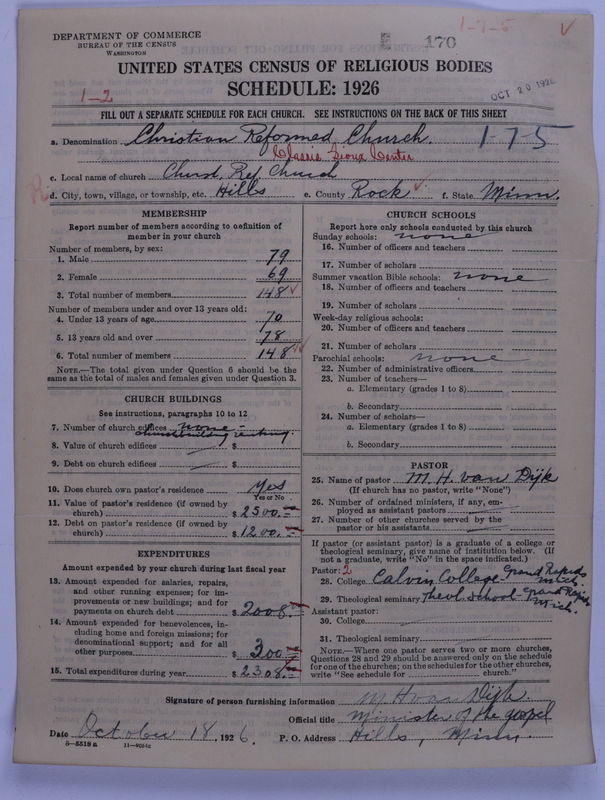 1-7-5
DEPARTMENT OF COMMERCE
BUREAU OF THE CENSUS
WASHINGTON
E 170
UNITED STATES CENSUS OF RELIGIOUS BODIES
SCHEDULE: 1926
OCT 20 1926
1-2
FILL OUT A SEPARATE SCHEDULE FOR EACH CHURCH. SEE INSTRUCTIONS ON THE BACK OF THIS SHEET
a. Denomination Christian Reformed Church. 1-7-5
Classis Sioux Center
c. Local name of church Christ. Ref. Church
d. City, town, village, or township, etc. Hills e. County Rock f. State Minn.
MEMBERSHIP
Report number of members according to definition of
member in your church
Number of members, by sex:
1. Male 79
2. Female 69
3. Total number of members 148
Number of members under and over 13 years old:
4. Under 13 years of age 70
5. 13 years old and over 78
6. Total number of members 148
NOTE.—The total given under Question 6 should be the
same as the total of males and females given under Question 3.
CHURCH BUILDINGS
See instructions, paragraphs 10 to 12
7. Number of church edifices none -
church building renting.
8. Value of church edifices $
9. Debt on church edifices $
10. Does church own pastor's residence Yes
Yes or No
11. Value of pastor's residence (if owned by
church) $ 2500.=
12. Debt on pastor's residence (if owned by
church) $ 1200.=
EXPENDITURES
Amount expended by your church during last fiscal year
13. Amount expended for salaries, repairs,
and other running expenses; for im-
provements or new buildings; and for
payments on church debt $ 2008.=
14. Amount expended for benevolences, in-
cluding home and foreign missions; for
denominational support; and for all
other purposes $ 300=
15. Total expenditures during year $ 2308.=
CHURCH SCHOOLS
Report here only schools conducted by this church
Sunday schools: none
16. Number of officers and teachers
17. Number of scholars
Summer vacation Bible schools: none
18. Number of officers and teachers
19. Number of scholars
Week-day religious schools:
20. Number of officers and teachers
21. Number of scholars
Parochial schools: none
22. Number of administrative officers
23. Number of teachers—
a. Elementary (grades 1 to 8)
b. Secondary
24. Number of scholars—
a. Elementary (grades 1 to 8)
b. Secondary
PASTOR
25. Name of pastor M. H. van Dijk
(If church has no pastor, write "None")
26. Number of ordained ministers, if any, em-
ployed as assistant pastors
27. Number of other churches served by the
pastor or his assistants
If pastor (or assistant pastor) is a graduate of a college or
theological seminary, give name of institution below. (If
not a graduate, write "No" in the space indicated.)
Pastor: 2
28. College Calvin College - Grand Rapids Mich.
29. Theological seminary Theol. School - Grand Rapids Mich.
Assistant pastor:
30. College
31. Theological seminary
NOTE.—Where one pastor serves two or more churches,
Questions 28 and 29 should be answered only on the schedule
for one of the churches; on the schedules for the other churches,
write "See schedule for church."
Signature of person furnishing information M H van Dijk
Official title Minister of the gospel
Date October 18, 1926. P. O. Address Hills, Minn.
8-5518a 11-9054c